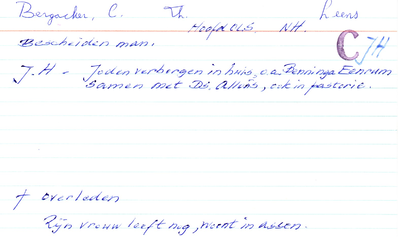 Bergacker, C. Th. Leens
Hoofd OLS. NH.
Bescheiden man.
C JH
J.H - Joden verborgen in huis, o.a. Benninga Eenrum
samen met Ds. , ook in pastorie.
† overleden
Zijn vrouw leeft nog, woont in Assen.